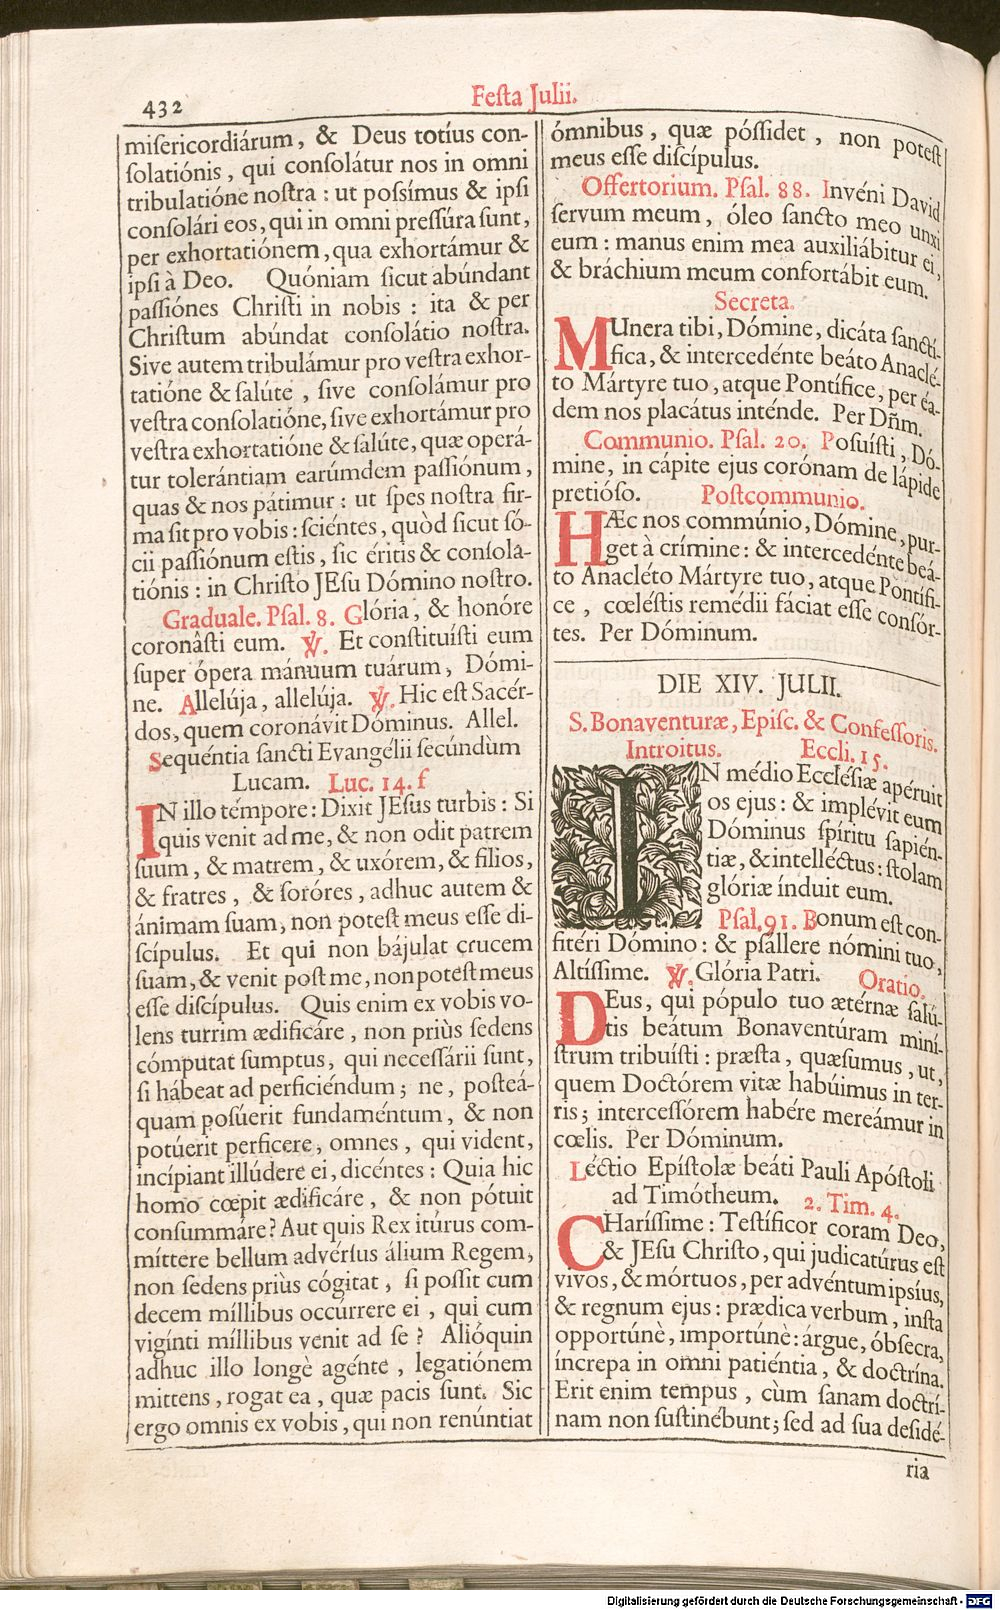 432
Festa Julii.
misericordiárum, & Deus totíus con-
solatiónis, qui consolátur nos in omni
tribulatióne nostra: ut possímus & ipsi
consolári eos, qui in omni pressúra sunt,
per exhortatiónem, qua exhortámur &
ipsi à Deo. Quóniam sicut abúndant
passiónes Christi in nobis: ita & per
Christum abúndat consolátio nostra.
Sive autem tribulámur pro vestra exhor-
tatióne & salúte, sive consolámur pro
vestra consolatióne, sive exhortámur pro
vestra exhortatióne & salúte, quæ operá-
tur tolerántiam earúmdem passiónum,
quas & nos pátimur: ut spes nostra fir-
ma sit pro vobis: sciéntes, quòd sicut só-
cii passiónum estis, sic éritis & consola-
tiónis: in Christo JEsu Dómino nostro.
Graduale. Psal. 8. Glória, & honóre
coronâsti eum. ℣. Et constituísti eum
super ópera mánuum tuárum, Dómi-
ne. Allelúja, allelúja. ℣. Hic est Sacér-
dos, quem coronávit Dóminus. Allel.
Sequéntia sancti Evangélii secúndùm
Lucam. Luc. 14. f
IN illo témpore: Dixit JEsus turbis: Si
quis venit ad me, & non odit patrem
suum, & matrem, & uxórem, & filios,
& fratres, & soróres, adhuc autem &
ánimam suam, non potest meus esse di-
scípulus. Et qui non bájulat crucem
suam, & venit post me, non potest meus
esse discípulus. Quis enim ex vobis vo-
lens turrim ædificáre, non priùs sedens
cómputat sumptus, qui necessárii sunt,
si hábeat ad perficiéndum; ne, posteá-
quam posúerit fundaméntum, & non
potúerit perficere, omnes, qui vident,
incípiant illúdere ei, dicéntes: Quia hic
homo cœpit ædificáre, & non pótuit
consummáre? Aut quis Rex itúrus com-
míttere bellum advérsus álium Regem,
non sedens priùs cógitat, si possit cum
decem míllibus occúrrere ei, qui cum
vigínti míllibus venit ad se? Alióquin
adhuc illo longè agénte, legatiónem
mittens, rogat ea, quæ pacis sunt. Sic
ergo omnis ex vobis, qui non renúntiat
ómnibus, quæ póssidet, non potest
meus esse discípulus.
Offertorium. Psal. 88. Invéni David
servum meum, óleo sancto meo unxi
eum: manus enim mea auxiliábitur ei,
& bráchium meum confortábit eum.
Secreta.
MUnera tibi, Dómine, dicáta sanctí-
fica, & intercedénte beáto Anaclé-
to Mártyre tuo, atque Pontífice, per éa-
dem nos placátus inténde. Per Dñm.
Communio. Psal. 20. Posuísti, Dó-
mine, in cápite ejus corónam de lápide
pretióso. Postcommunio.
HÆc nos commúnio, Dómine, pur-
get à crímine: & intercedénte beá-
to Anacléto Mártyre tuo, atque Pontífi-
ce, cœléstis remédii fáciat esse consór-
tes. Per Dóminum.
DIE XIV. JULII.
S. Bonaventuræ, Episc. & Confessoris.
Introitus. Eccli. 15.
IN médio Ecclésiæ apéruit
os ejus: & implévit eum
Dóminus spíritu sapién-
tiæ, & intelléctus: stolam
glóriæ índuit eum.
Psal. 91. Bonum est con-
fitéri Dómino: & psállere nómini tuo,
Altíssime. ℣. Glória Patri. Oratio.
DEus, qui pópulo tuo ætérnæ salú-
tis beátum Bonaventúram mini-
strum tribuísti: præsta, quæsumus, ut,
quem Doctórem vitæ habúimus in ter-
ris; intercessórem habére mereámur in
cœlis. Per Dóminum.
Léctio Epístolæ beáti Pauli Apóstoli
ad Timótheum. 2. Tim. 4.
CHaríssime: Testíficor coram Deo,
& JEsu Christo, qui judicatúrus est
vivos, & mórtuos, per advéntum ipsíus,
& regnum ejus: prædica verbum, insta
opportúnè, importúnè: árgue, óbsecra,
íncrepa in omni patiéntia, & doctrína.
Erit enim tempus, cùm sanam doctrí-
nam non sustinébunt; sed ad sua desidé-
ria
Digitalisierung gefördert durch die Deutsche Forschungsgemeinschaft - DFG